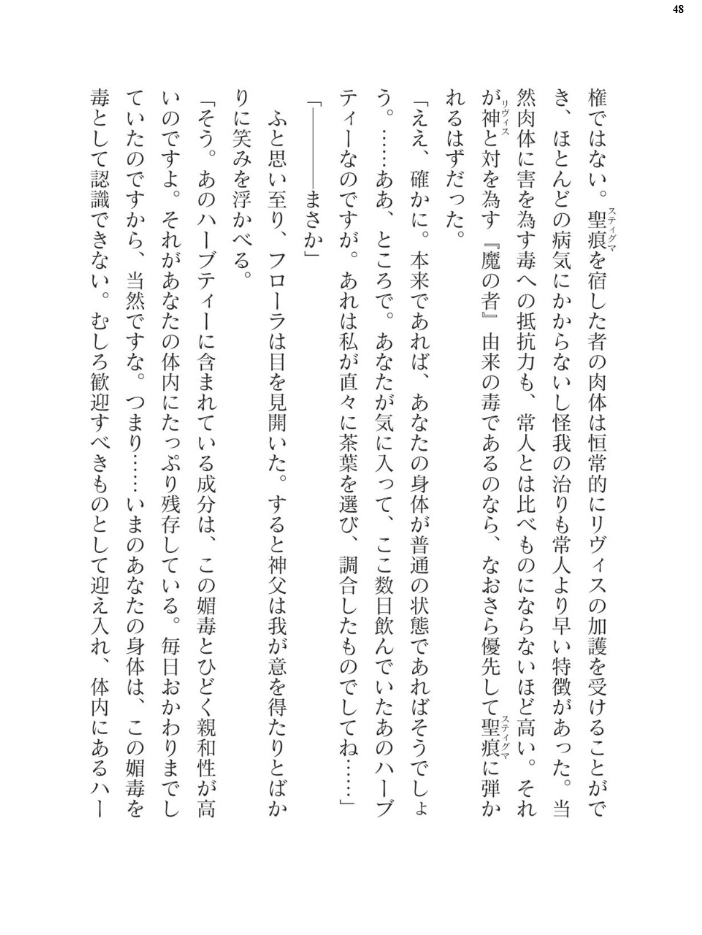 48
権ではない。聖痕を宿した者の肉体は恒常的にリヴィスの加護を受けることがで
スティグマ
き、ほとんどの病気にかからないし怪我の治りも常人より早い特徴があった。当
然肉体に害を為す毒への抵抗力も、常人とは比べものにならないほど高い。それ
が神と対を為す『魔の者』由来の毒であるのなら、なおさら優先して聖痕に弾か
リヴィス
スティグマ
れるはずだった。
「ええ、確かに。本来であれば、あなたの身体が普通の状態であればそうでしょ
う。……ああ、ところで。あなたが気に入って、ここ数日飲んでいたあのハーブ
ティーなのですが。あれは私が直々に茶葉を選び、調合したものでしてね……」
「――――まさか」
ふと思い至り、フローラは目を見開いた。すると神父は我が意を得たりとばか
りに笑みを浮かべる。
「そう。あのハーブティーに含まれている成分は、この媚毒とひどく親和性が高
いのですよ。それがあなたの体内にたっぷり残存している。毎日おかわりまでし
ていたのですから、当然ですな。つまり……いまのあなたの身体は、この媚毒を
毒として認識できない。むしろ歓迎すべきものとして迎え入れ、体内にあるハー